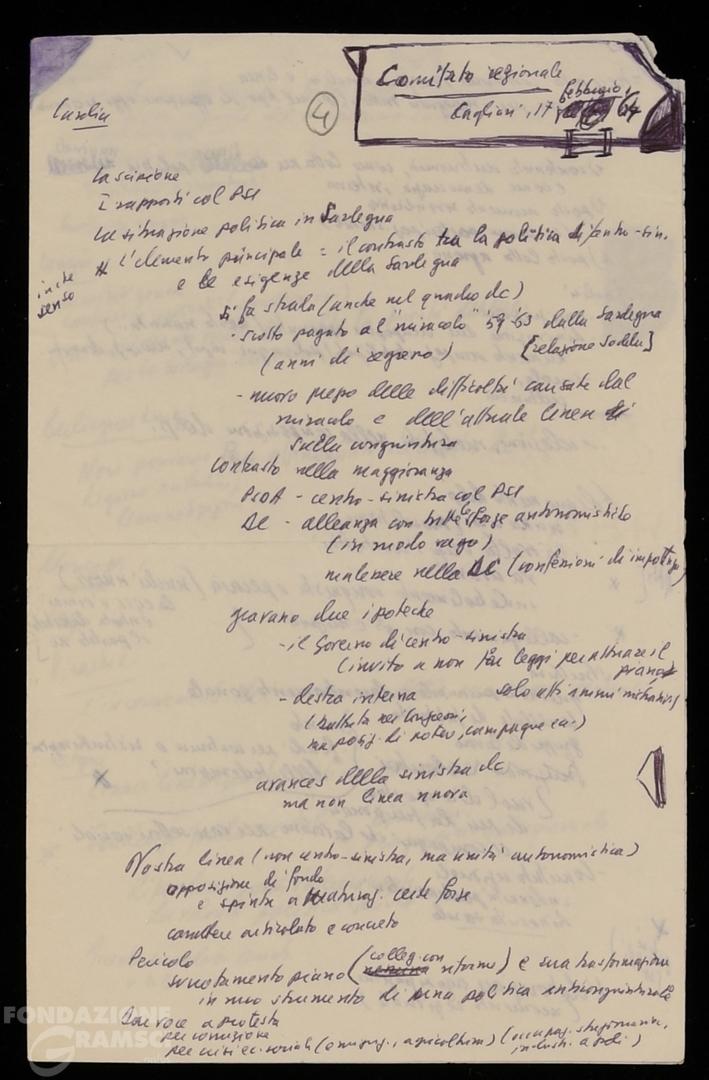 Comitato regionale
Cagliari, 17 febbraio, 64
4
Cardia
La scissione
I rapporti col PSI
La situazione politica in Sardegna
L'elemento principale = il contrasto tra la politica di centro-sin.
e le esigenze della Sardegna
in che
senso
si fa strada (anche nel quadro dc)
- scotto pagato al "miracolo" '59-'63 dalla Sardegna
(anni di regresso) [relazione Soddu]
- nuovo peso delle difficoltà causate dal
miracolo e dell'attuale linea
sulla congiuntura
Contrasto nella maggioranza
PSdA - centro-sinistra col PSI
DC - alleanza con tutte le forze autonomistiche
(in modo vago)
malessere nella DC (confessioni di impotenza)
gravano due ipoteche
- il Governo di centro-sinistra
(invito a non far leggi per attuare il
piano
solo atti amministrativi)
- destra interna
(battuta nei Congressi,
ma posiz. di potere, campagne ecc.)
avances della sinistra dc
ma non linea nuova
Nostra linea (non centro-sinistra, ma unità autonomistica)
opposizione di fondo
e spinta a maturaz. certe forze
carattere articolato e concreto
Pericolo
svuotamento piano (colleg. con riforme) e sua trasformazione
in uno strumento di una politica anticongiunturale
Dar voce a protesta
per corruzione
per crisi ec. sociale (emigraz., agricoltura) (occupaz.
industr.
FONDAZIONE
GRAMSCI